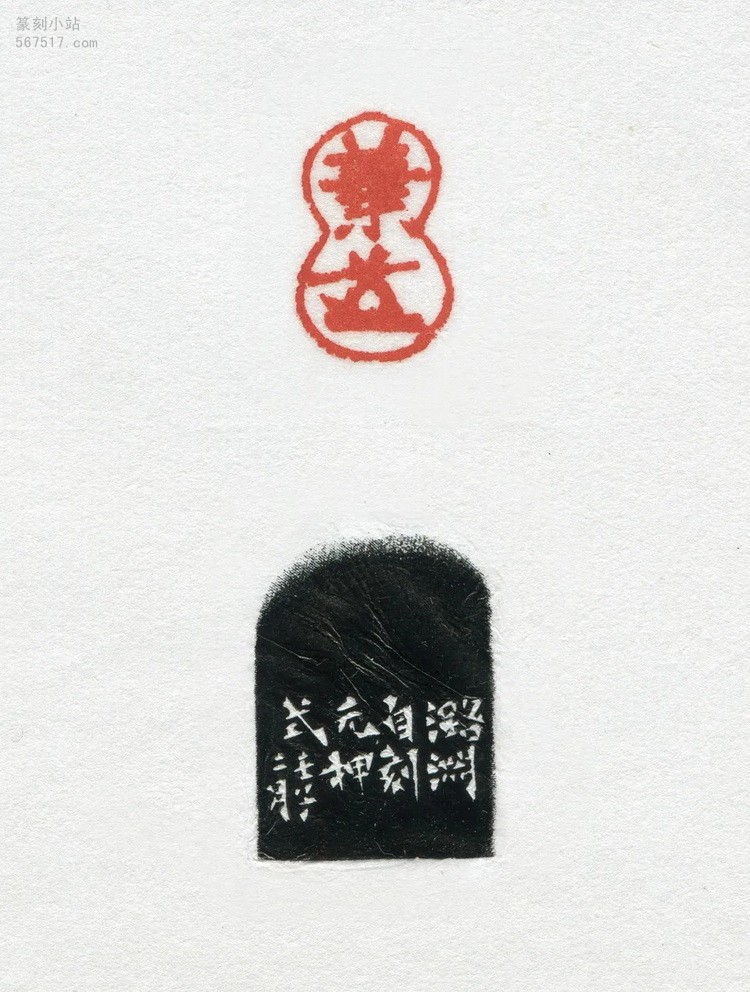 篆刻小站
567517.com
葉
潞渊
自刻
元押
式
壬子
二月